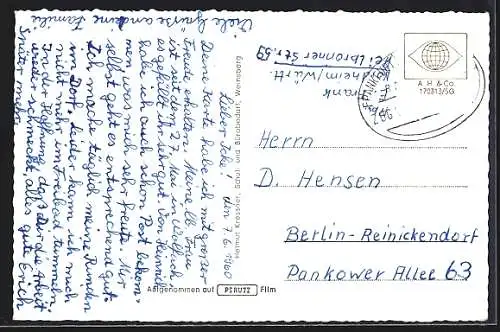 Lieber Ede! den 7.6.1960
Deine Karte habe ich mit großer
Freude erhalten. Meine lb. Frau
ist seit dem 27. Mai in Wolfach
es gefällt ihr sehr gut. Von Heinrich
habe ich auch schon Post bekom-
men was mich sehr freute. Mir
selbst geht es entsprechend gut.
Ich mache täglich meine Runden
im Dorf, leider kann ich mich
nicht mehr im Freibad tummeln.
In der Hoffnung, daß Dir die Arbeit
wieder schmeckt, alles gute Erich
Später mehr.
Viele Grüsse an deine Familie
Frank
Heilbronner Str. 59
Helmut Kresscher, Schul- und Bürobedarf, Weinsberg
Aufgenommen auf PERUTZ Film
A. H. & Co.
170313/5G
Herrn
D. Hensen
Berlin-Reinickendorf
Pankower Allee 63